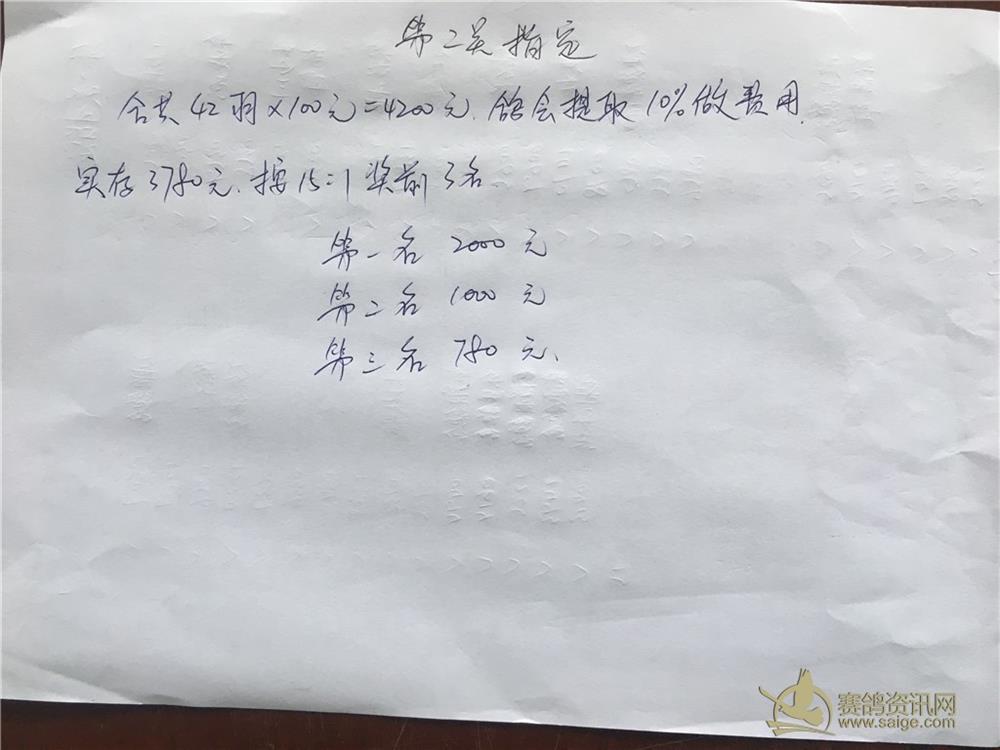 第二关指定
合共42羽×100元=4200元.鸽会提取10%做费用.
实存3780元.按15:1奖前3名
第一名 2000元
第二名 1000元
第三名 780元.
赛鸽资讯网
www.saige.com